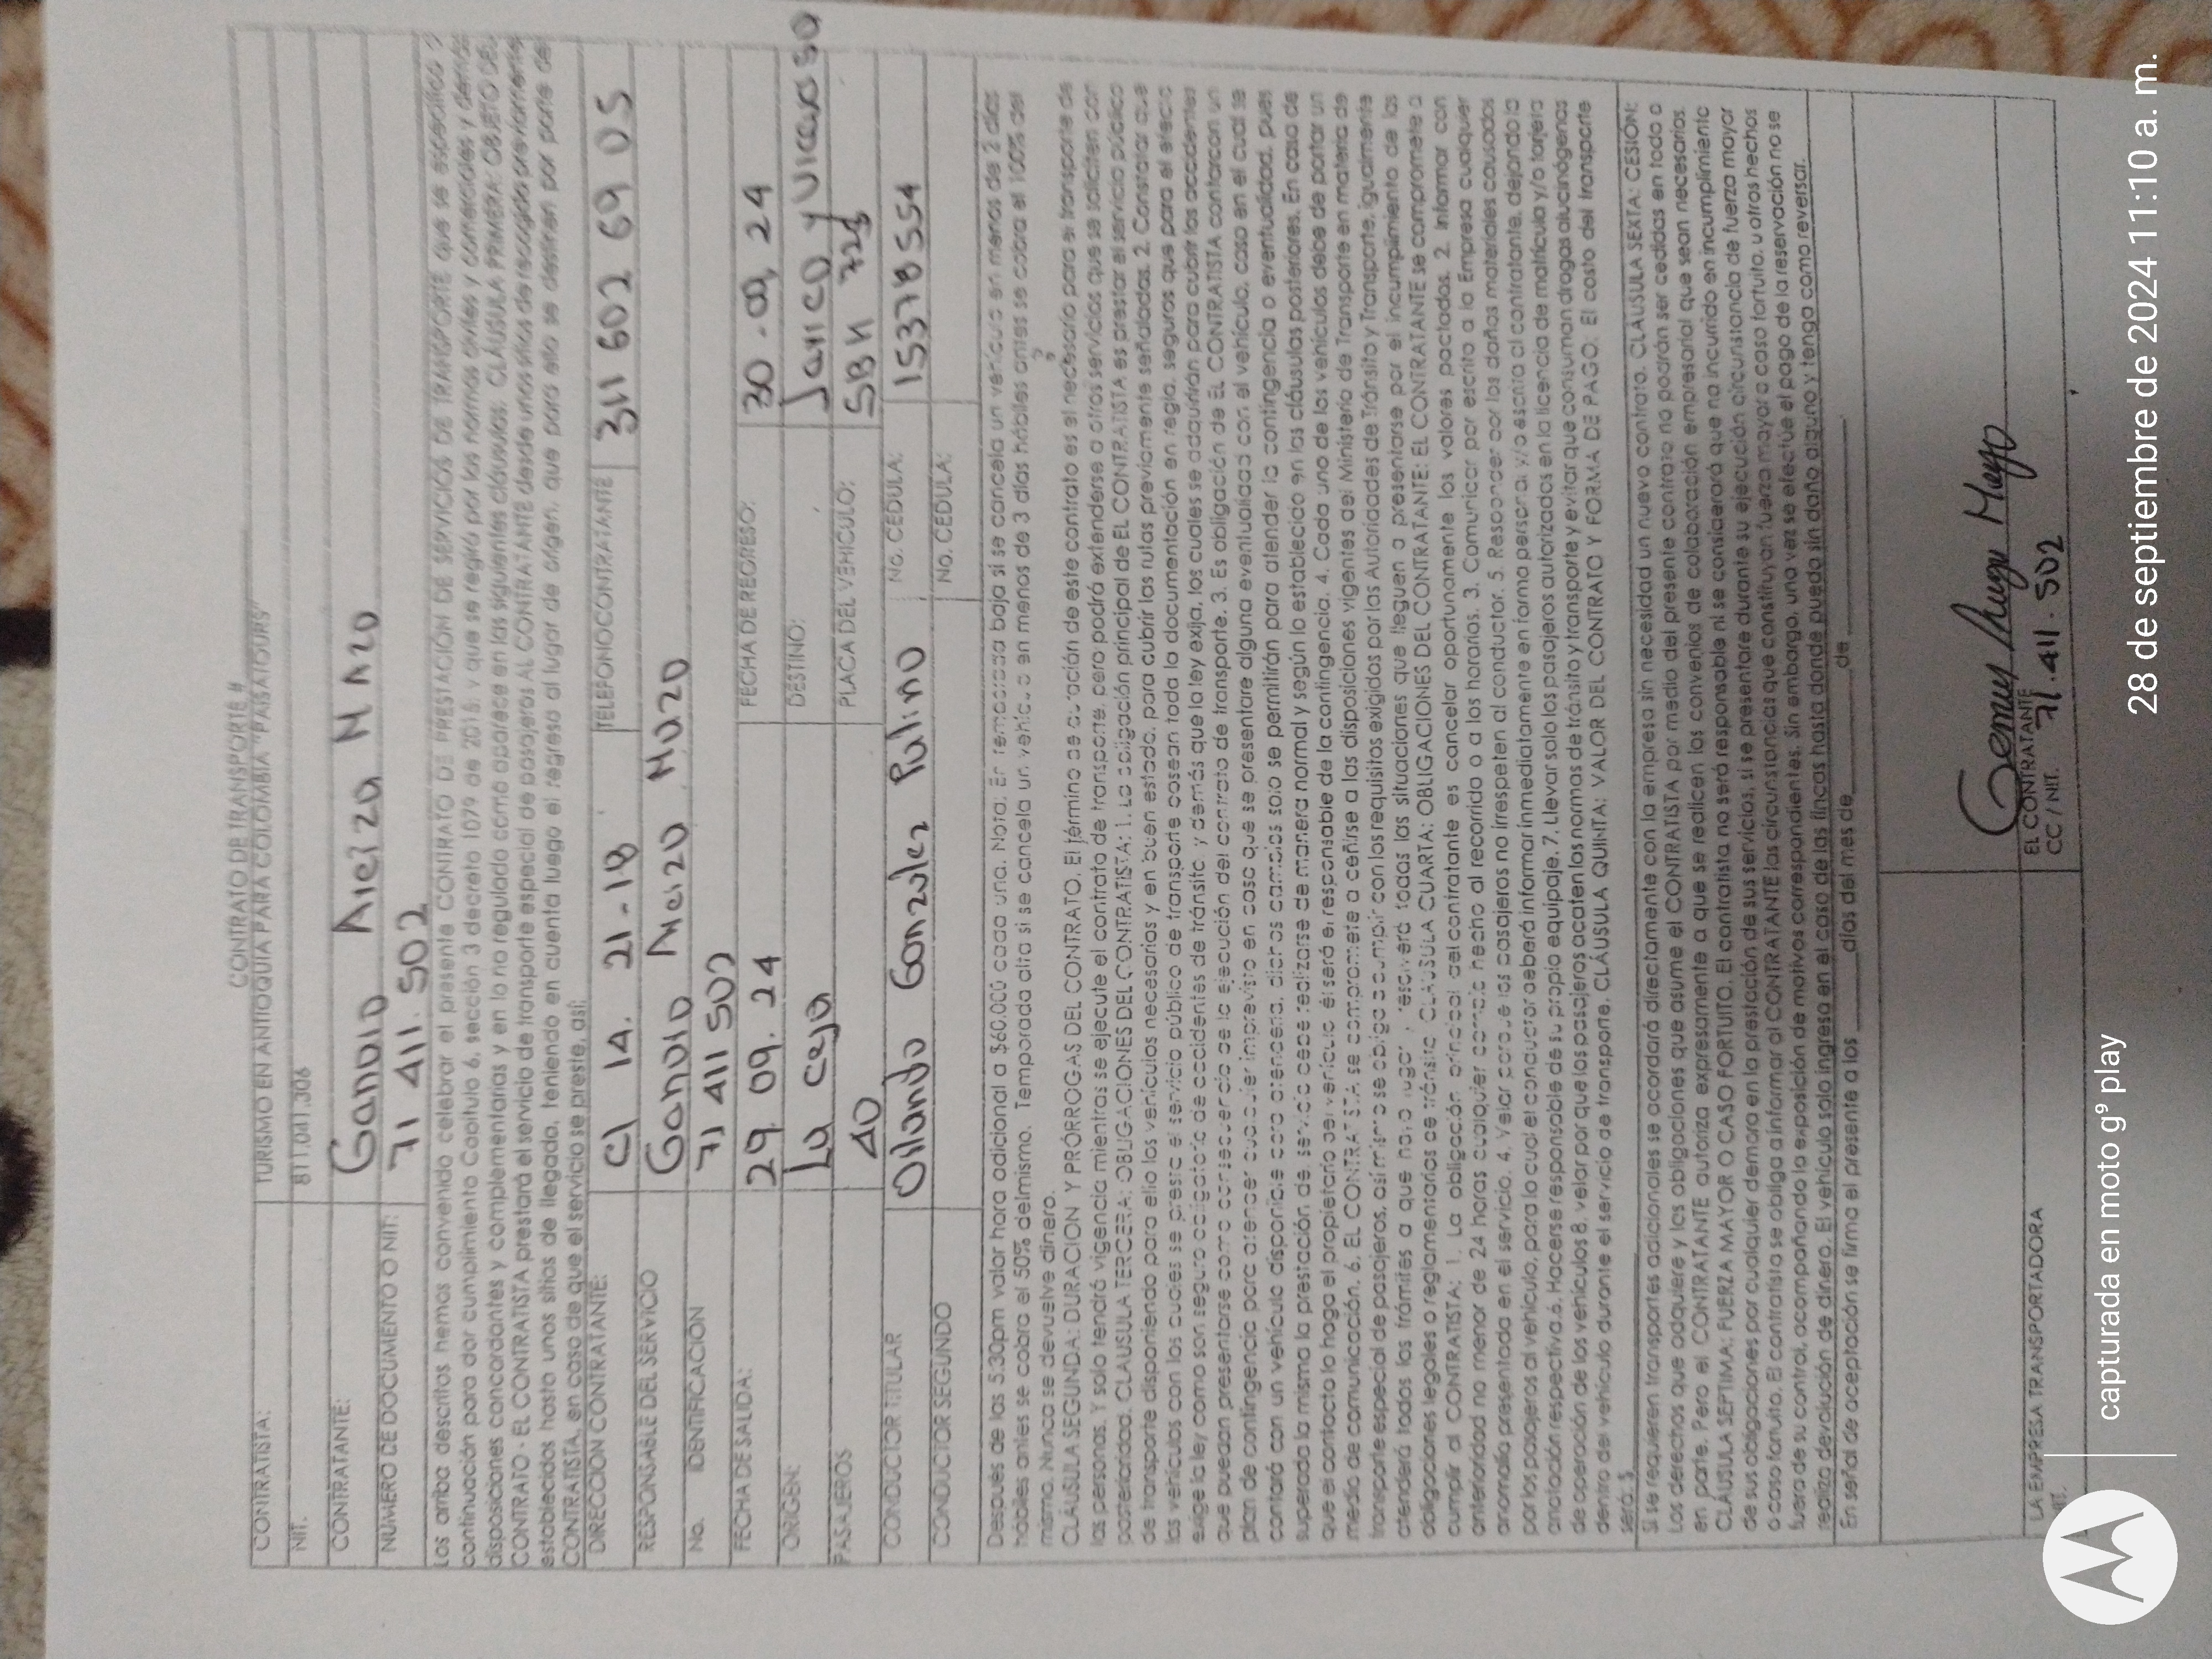 CONTRATO DE TRANSPORTE #
CONTRATISTA: TURISMO EN ANTIOQUIA PARA COLOMBIA "PAISATOURS"
NIT. 811.041.306
CONTRATANTE:
NUMERO DE DOCUMENTO O NIT: 71 411. 502
Los arriba descritos hemos convenido celebrar el presente CONTRATO DE PRESTACIÓN DE SERVICIOS DE TRANSPORTE que se especifica a
continuación para dar cumplimiento Capitulo 6, sección 3 decreto 1079 de 2015; y que se regirá por las normas civiles y comerciales y demás
disposiciones concordantes y complementarias y en lo no regulado como aparece en las siguientes cláusulas. CLÁUSULA PRIMERA: OBJETO DEL
CONTRATO - EL CONTRATISTA prestará el servicio de transporte especial de pasajeros AL CONTRATANTE desde unos sitios de recogida previamente
establecidos hasta unos sitios de llegada, teniendo en cuenta luego el regreso al lugar de origen, que para ello se destinen por parte del
CONTRATISTA, en caso de que el servicio se preste, así:
DIRECCION CONTRATANTE: Cl 14. 21-18 TELEFONO CONTRATANTE 311 602 69 05
RESPONSABLE DEL SERVICIO
No. IDENTIFICACION 71 411 502
FECHA DE SALIDA: 29. 09. 24 FECHA DE REGRESO: 30 - 09, 24
ORIGEN: La Ceja DESTINO: Jerico y
PASAJEROS 40 PLACA DEL VEHICULO:
CONDUCTOR TITULAR Orlando Gonzalez No. CEDULA: 15378554
CONDUCTOR SEGUNDO No. CEDULA:
Después de las 5:30pm valor hora adicional a $60.000 cada una. Nota: En temporada baja si se cancela un vehículo en menos de 2 días
hábiles antes se cobra el 50% del mismo. Temporada alta si se cancela un vehículo en menos de 3 días hábiles antes se cobra el 100% del
mismo. Nunca se devuelve dinero.
CLÁUSULA SEGUNDA: DURACION Y PRÓRROGAS DEL CONTRATO. El término de duración de este contrato es el necesario para el transporte de
las personas. Y solo tendrá vigencia mientras se ejecute el contrato de transporte, pero podrá extenderse a otros servicios que se soliciten con
posterioridad. CLAUSULA TERCERA: OBLIGACIONES DEL CONTRATISTA: 1. La obligación principal de EL CONTRATISTA es prestar el servicio público
de transporte disponiendo para ello los vehículos necesarios y en buen estado, para cubrir las rutas previamente señaladas. 2. Constatar que
los vehículos con los cuales se presta el servicio público de transporte posean toda la documentación en regla, seguros que para el efecto
exige la ley como son seguro obligatorio de accidentes de tránsito y demás que la ley exija, los cuales se adquirirán para cubrir los accidentes
que puedan presentarse como consecuencia de la ejecución del contrato de transporte. 3. Es obligación de EL CONTRATISTA contar con un
plan de contingencia para atender cualquier imprevisto en caso que se presentare alguna eventualidad con el vehículo, caso en el cual se
contará con un vehículo disponible para atenderla, dichos cambios solo se permitirán para atender la contingencia o eventualidad, pues
superada la misma la prestación del servicio debe realizarse de manera normal y según lo establecido en las cláusulas posteriores. En caso de
que el contacto lo haga el propietario del vehículo él será el responsable de la contingencia. 4. Cada uno de los vehículos debe de portar un
medio de comunicación. 6. EL CONTRATISTA se compromete a ceñirse a las disposiciones vigentes del Ministerio de Transporte en materia de
transporte especial de pasajeros, así mismo se obliga a cumplir con los requisitos exigidos por las Autoridades de Tránsito y Transporte, igualmente
atenderá todos los trámites a que haya lugar y resolverá todas las situaciones que lleguen a presentarse por el incumplimiento de las
obligaciones legales o reglamentarias de tránsito. CLAUSULA CUARTA: OBLIGACIONES DEL CONTRATANTE: EL CONTRATANTE se compromete a
cumplir al CONTRATISTA: 1. La obligación principal del contratante es cancelar oportunamente los valores pactados. 2. Informar con
anterioridad no menor de 24 horas cualquier cambio hecho al recorrido o a los horarios. 3. Comunicar por escrito a la Empresa cualquier
anomalía presentada en el servicio. 4. Velar para que los pasajeros no irrespeten al conductor. 5. Responder por los daños materiales causados
por los pasajeros al vehículo, para lo cual el conductor deberá informar inmediatamente en forma personal y/o escrita al contratante, dejando la
anotación respectiva. 6. Hacerse responsable de su propio equipaje. 7. Llevar solo los pasajeros autorizados en la licencia de matrícula y/o tarjeta
de operación de los vehículos 8. velar por que los pasajeros acaten las normas de tránsito y transporte y evitar que consuman drogas alucinógenas
dentro del vehículo durante el servicio de transporte. CLÁUSULA QUINTA: VALOR DEL CONTRATO Y FORMA DE PAGO. El costo del transporte
será: $
Si se requieren transportes adicionales se acordará directamente con la empresa sin necesidad un nuevo contrato. CLÁUSULA SEXTA: CESIÓN:
Los derechos que adquiere y las obligaciones que asume el CONTRATISTA por medio del presente contrato no podrán ser cedidas en todo o
en parte. Pero el CONTRATANTE autoriza expresamente a que se realicen los convenios de colaboración empresarial que sean necesarios.
CLÁUSULA SEPTIMA: FUERZA MAYOR O CASO FORTUITO. El contratista no será responsable ni se considerará que ha incurrido en incumplimiento
de sus obligaciones por cualquier demora en la prestación de sus servicios, si se presentare durante su ejecución circunstancia de fuerza mayor
o caso fortuito. El contratista se obliga a informar al CONTRATANTE las circunstancias que constituyan fuerza mayor o caso fortuito, u otros hechos
fuera de su control, acompañando la exposición de motivos correspondientes. Sin embargo, una vez se efectúe el pago de la reservación no se
realiza devolución de dinero. El vehículo solo ingresa en el caso de las fincas hasta donde pueda sin daño alguno y tenga como reversar.
En señal de aceptación se firma el presente a los ____ días del mes de ____ de ____
LA EMPRESA TRANSPORTADORA EL CONTRATANTE
NIT. CC / NIT. 71.411.502
capturada en moto g⁹ play 28 de septiembre de 2024 11:10 a. m.